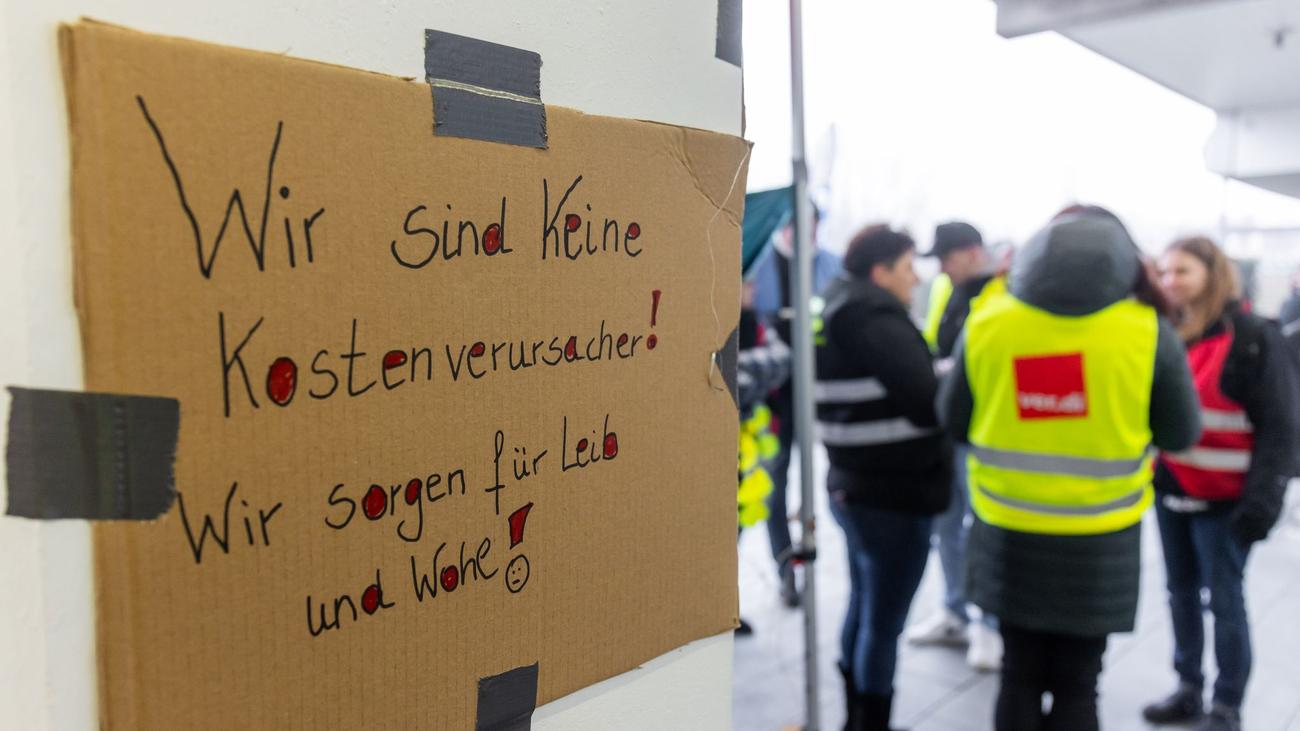 Wir sind Keine
Kostenverursacher!
Wir sorgen für Leib
und Wohe!
ver.di